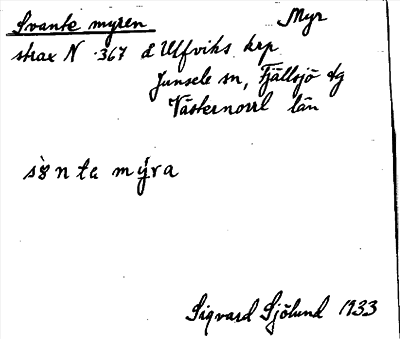 Svante myren Myr
strax N .367 å Ulfviks krp
Junsele sn, Fjällsjö tg
Västernorrl län
myra
Sigvard Sjölund 1933